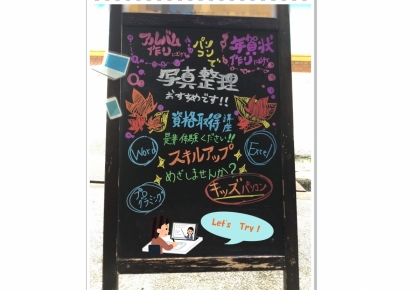 アルバム作りにも パソコンで 年賀状作りにも
写真整理
おすすめです!!
資格取得講座
是非体験ください!!
Word スキルアップ Excel
めざしませんか?
プログラミング キッズパソコン
Let's Try!